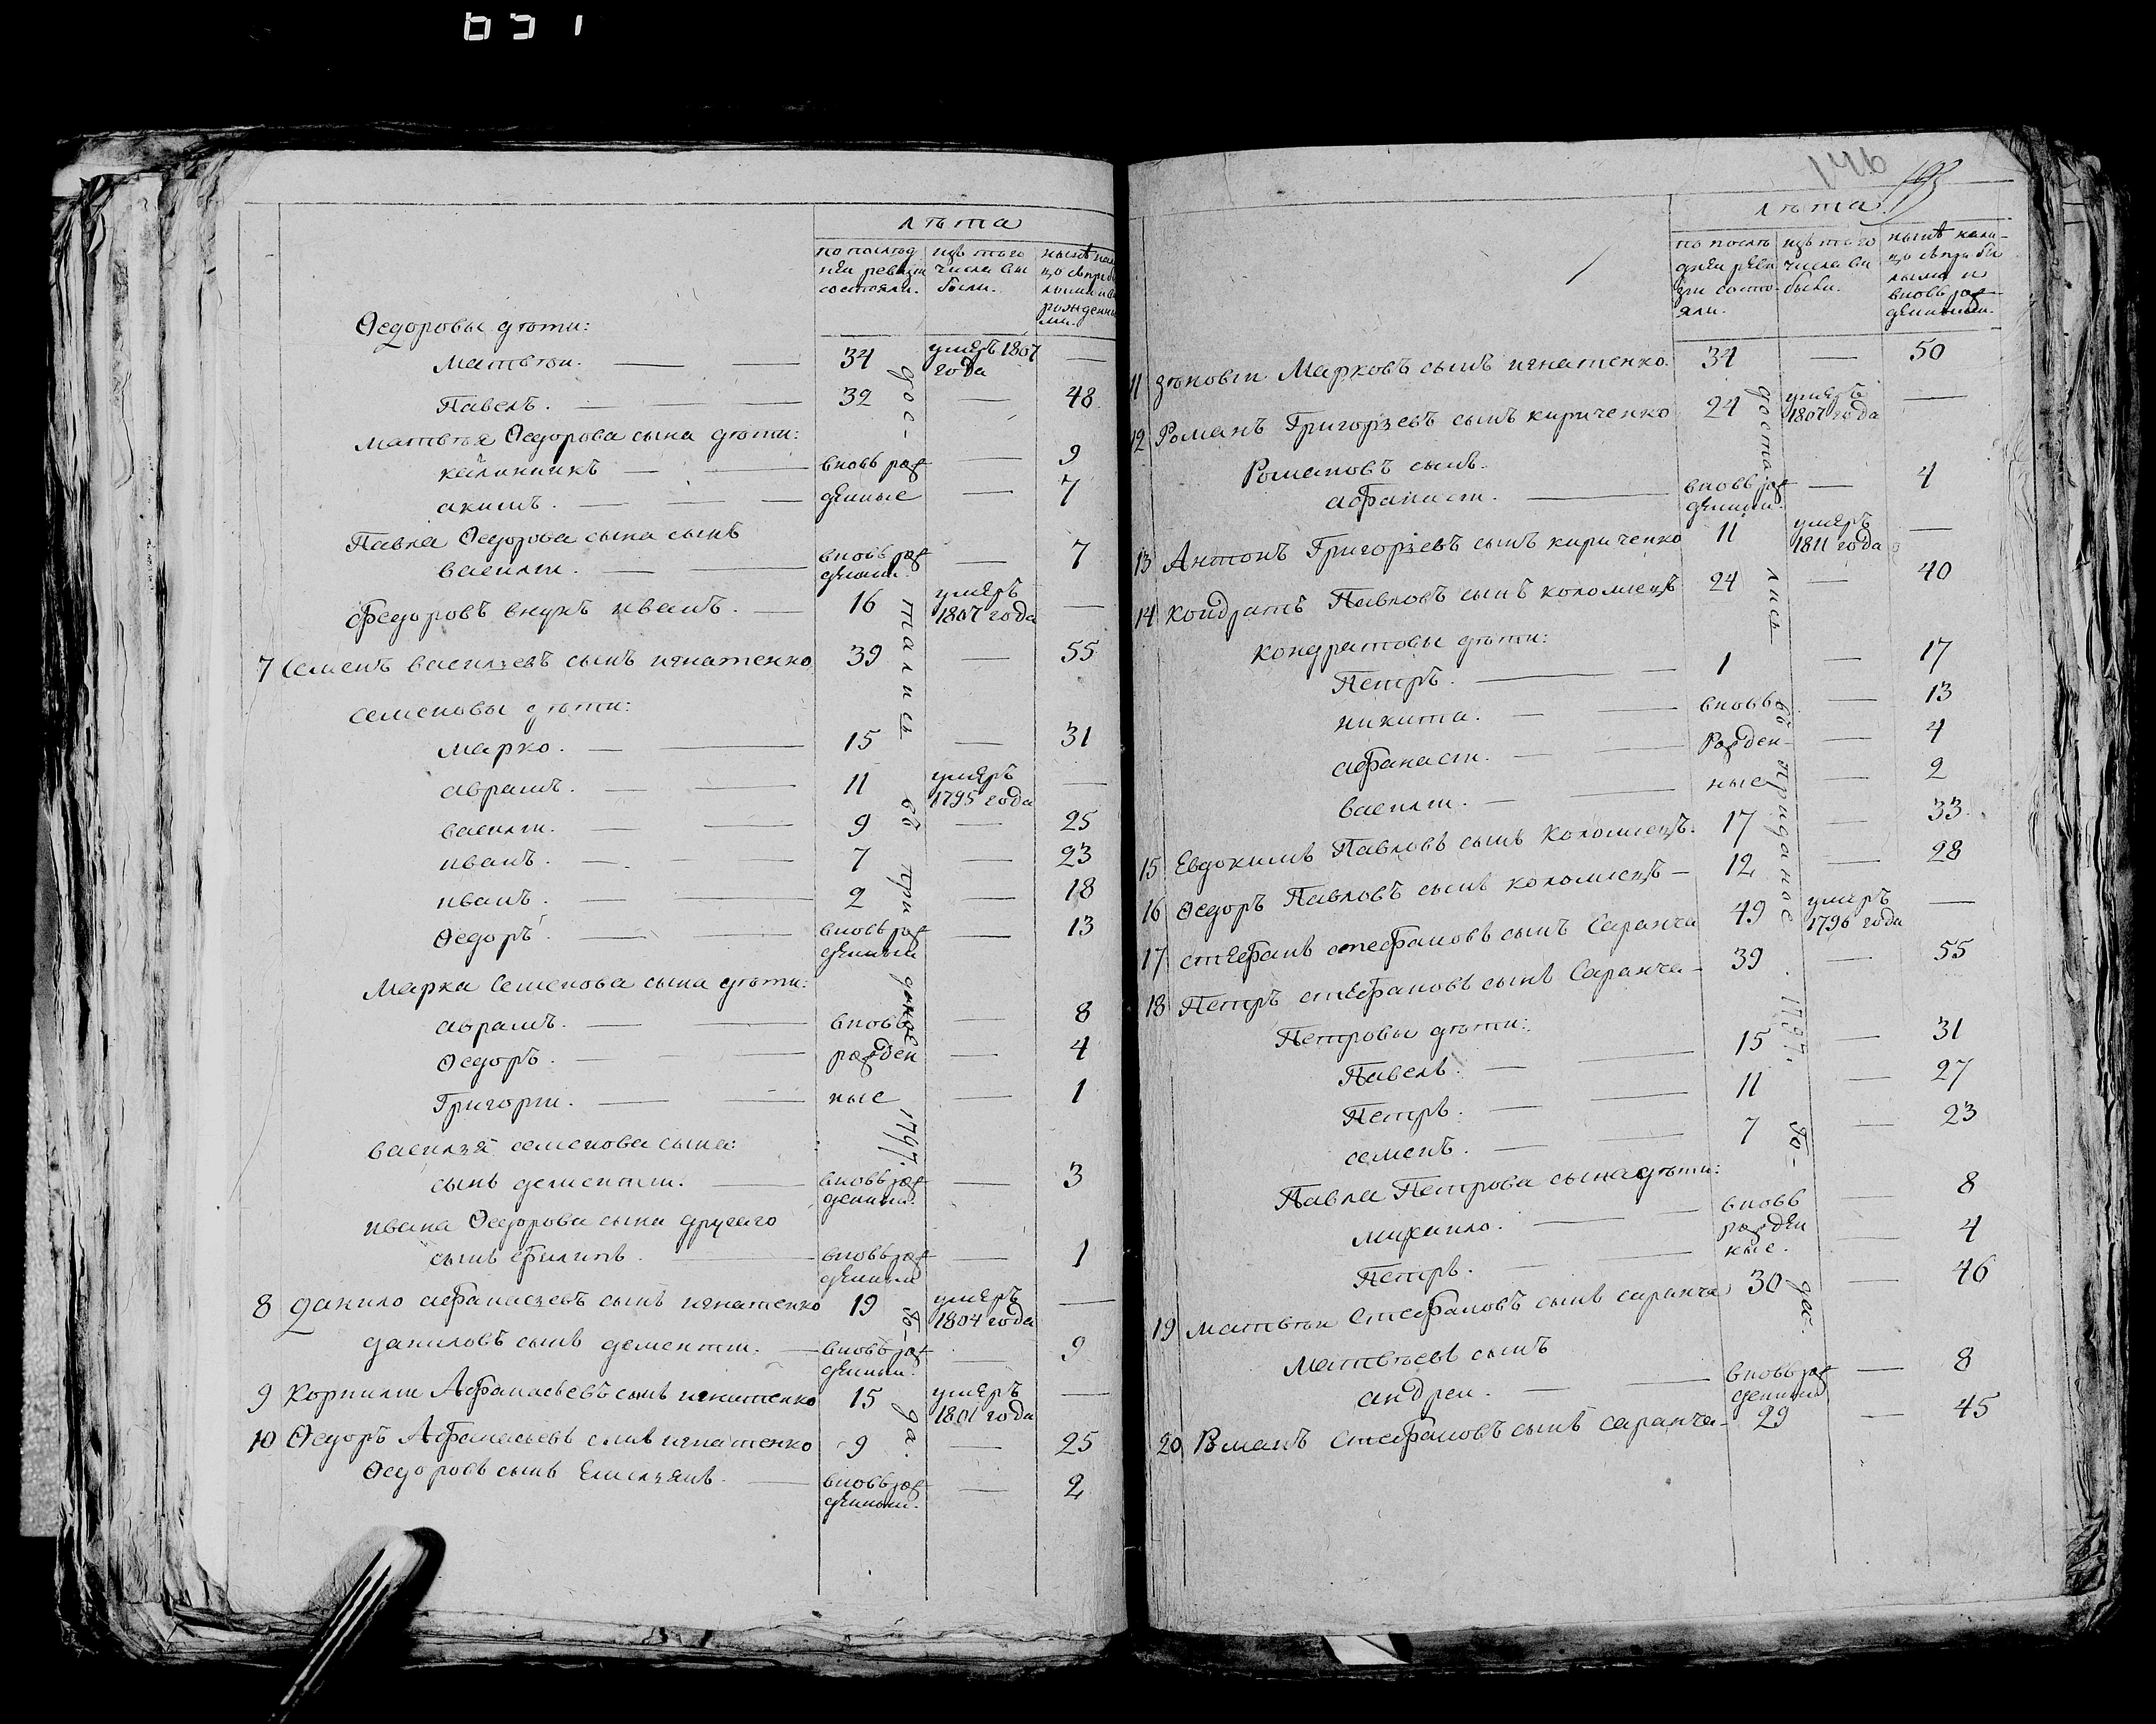 651
лѣта
по послѣд
ней ревизи
состояли.
изъ того
числа вы
были.
нынѣ нали
цо съ прибы
лыми и вновь
рожденны
ми.
Ѳедоровы дѣти:
Матвѣй. 34 умеръ 1807 года —
Павелъ. 32 — 48
Матвѣя Ѳедорова сына дѣти:
калинникъ вновь рож — 9
акимъ. денные — 7
Павла Ѳедорова сына сынъ
василiй. вновь рож денный. — 7
Федоровъ внукъ иванъ. 16 умеръ 1807 года —
7 Семенъ васильевъ сынъ игнатенко 39 — 55
семеновы дѣти:
марко. 15 — 31
аврамъ. 11 умеръ 1795 года —
василiй. 9 — 25
иванъ. 7 — 23
иванъ. 2 — 18
Ѳедоръ. вновь рож денный — 13
Марка Семенова сына дѣти:
аврамъ. вновь — 8
Ѳедоръ. рожден — 4
Григорiй. ные — 1
василья семенова сына:
сынъ дементiй. вновь рож денный. — 3
ивана Ѳедорова сына другаго
сынъ филипъ. вновь рож денный — 1
8 данило афанасьевъ сынъ игнатенко 19 умеръ 1804 года —
даниловъ сынъ дементiй. вновь рож денный. — 9
9 Корнилiй Афанасьевъ сынъ игнатенко 15 умеръ 1801 года —
10 Ѳедоръ Афанасьевъ сынъ игнатенко 9 — 25
Ѳедоровъ сынъ Емельянъ. вновь рож денный. — 2
дос-
тались
въ
при
даное
1797.
го-
да.
146
193
лѣта
по послѣ
дней реви
зiи состо-
яли.
изъ того
числа вы
были.
нынѣ нали-
цо съ прибы
лыми и
вновь рож
денными.
11 зѣновiй Марковъ сынъ игнатенко. 34 — 50
12 Романъ Григорьевъ сынъ кириченко 24 умеръ 1807 года —
Романовъ сынъ.
афанасiй. вновь рож денный. — 4
13 Антонъ Григорьевъ сынъ кириченко 11 умеръ 1811 года —
14 кондратъ Павловъ сынъ коломiецъ 24 — 40
кондратовы дѣти:
Петръ. 1 — 17
никита. вновь — 13
афанасiй. Рожден- — 4
василiй. ные — 2
15 Евдокимъ Павловъ сынъ Коломiецъ. 17 — 33
16 Ѳедоръ Павловъ сынъ коломiецъ 12 — 28
17 стефанъ стефановъ сынъ Саранча 49 умеръ 1796 года —
18 Петръ стефановъ сынъ Саранча 39 — 55
Петровы дѣти:
Павелъ. 15 — 31
Петръ. 11 — 27
семенъ. 7 — 23
Павла Петрова сына дѣти:
михайло. вновь — 8
Петръ. рожден ные. — 4
19 матвѣй Стефановъ сынъ саранча 30 — 46
Матвѣевъ сынъ
андрей. вновь рож денный — 8
20 Романъ Стефановъ сынъ саранча 29 — 45
доста
лись
въ
приданое
1797.
го-
да.